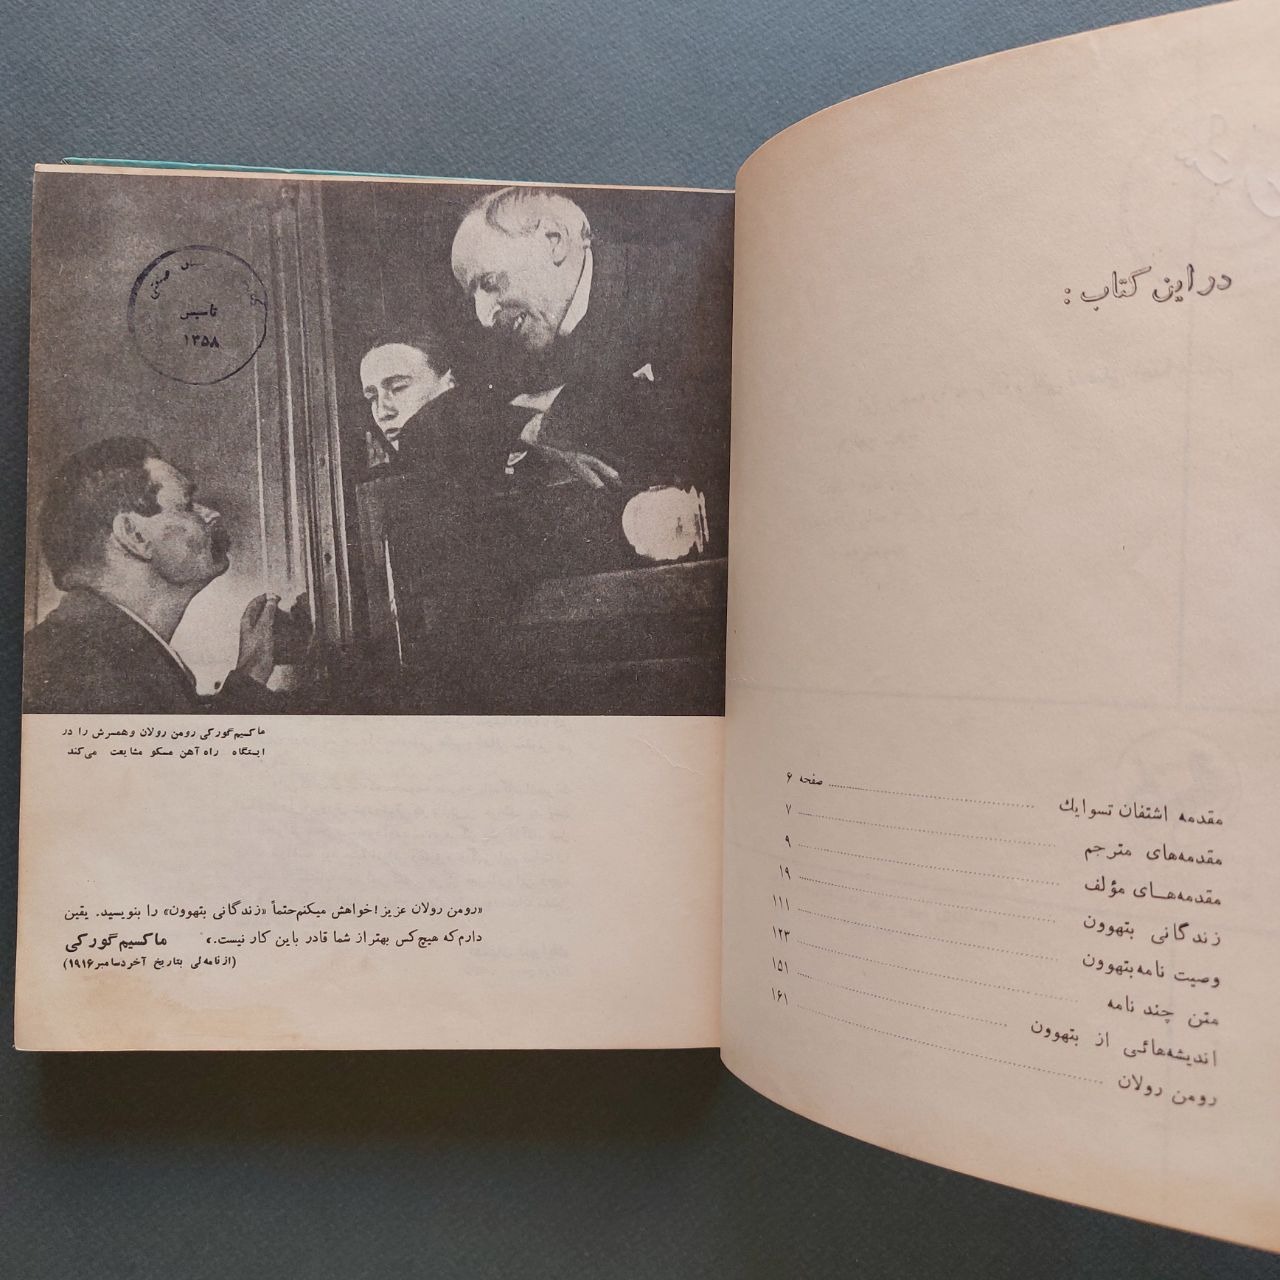 در این کتاب :
مقدمه اشتفان تسوایك صفحه ۶
مقدمه‌های مترجم ۷
مقدمه‌هـای مؤلف ۹
زندگانی بتهوون ۱۹
وصیت نامه بتهوون ۱۱۱
متن چند نامه ۱۲۳
اندیشه‌هائی از بتهوون ۱۵۱
رومن رولان ۱۶۱
صنعتی
تاسیس
۱۳۵۸
ماکسیم گورکی رومن رولان وهمسرش را در
ایستگاه راه آهن مسکو مشایعت می‌کند
«رومن رولان عزیز! خواهش میکنم حتماً «زندگانی بتهوون» را بنویسید. یقین
دارم که هیچ کس بهتر از شما قادر باین کار نیست.» ماکسیم گورکی
(ازنامه‌ئی بتاریخ آخر دسامبر ۱۹۱۶)